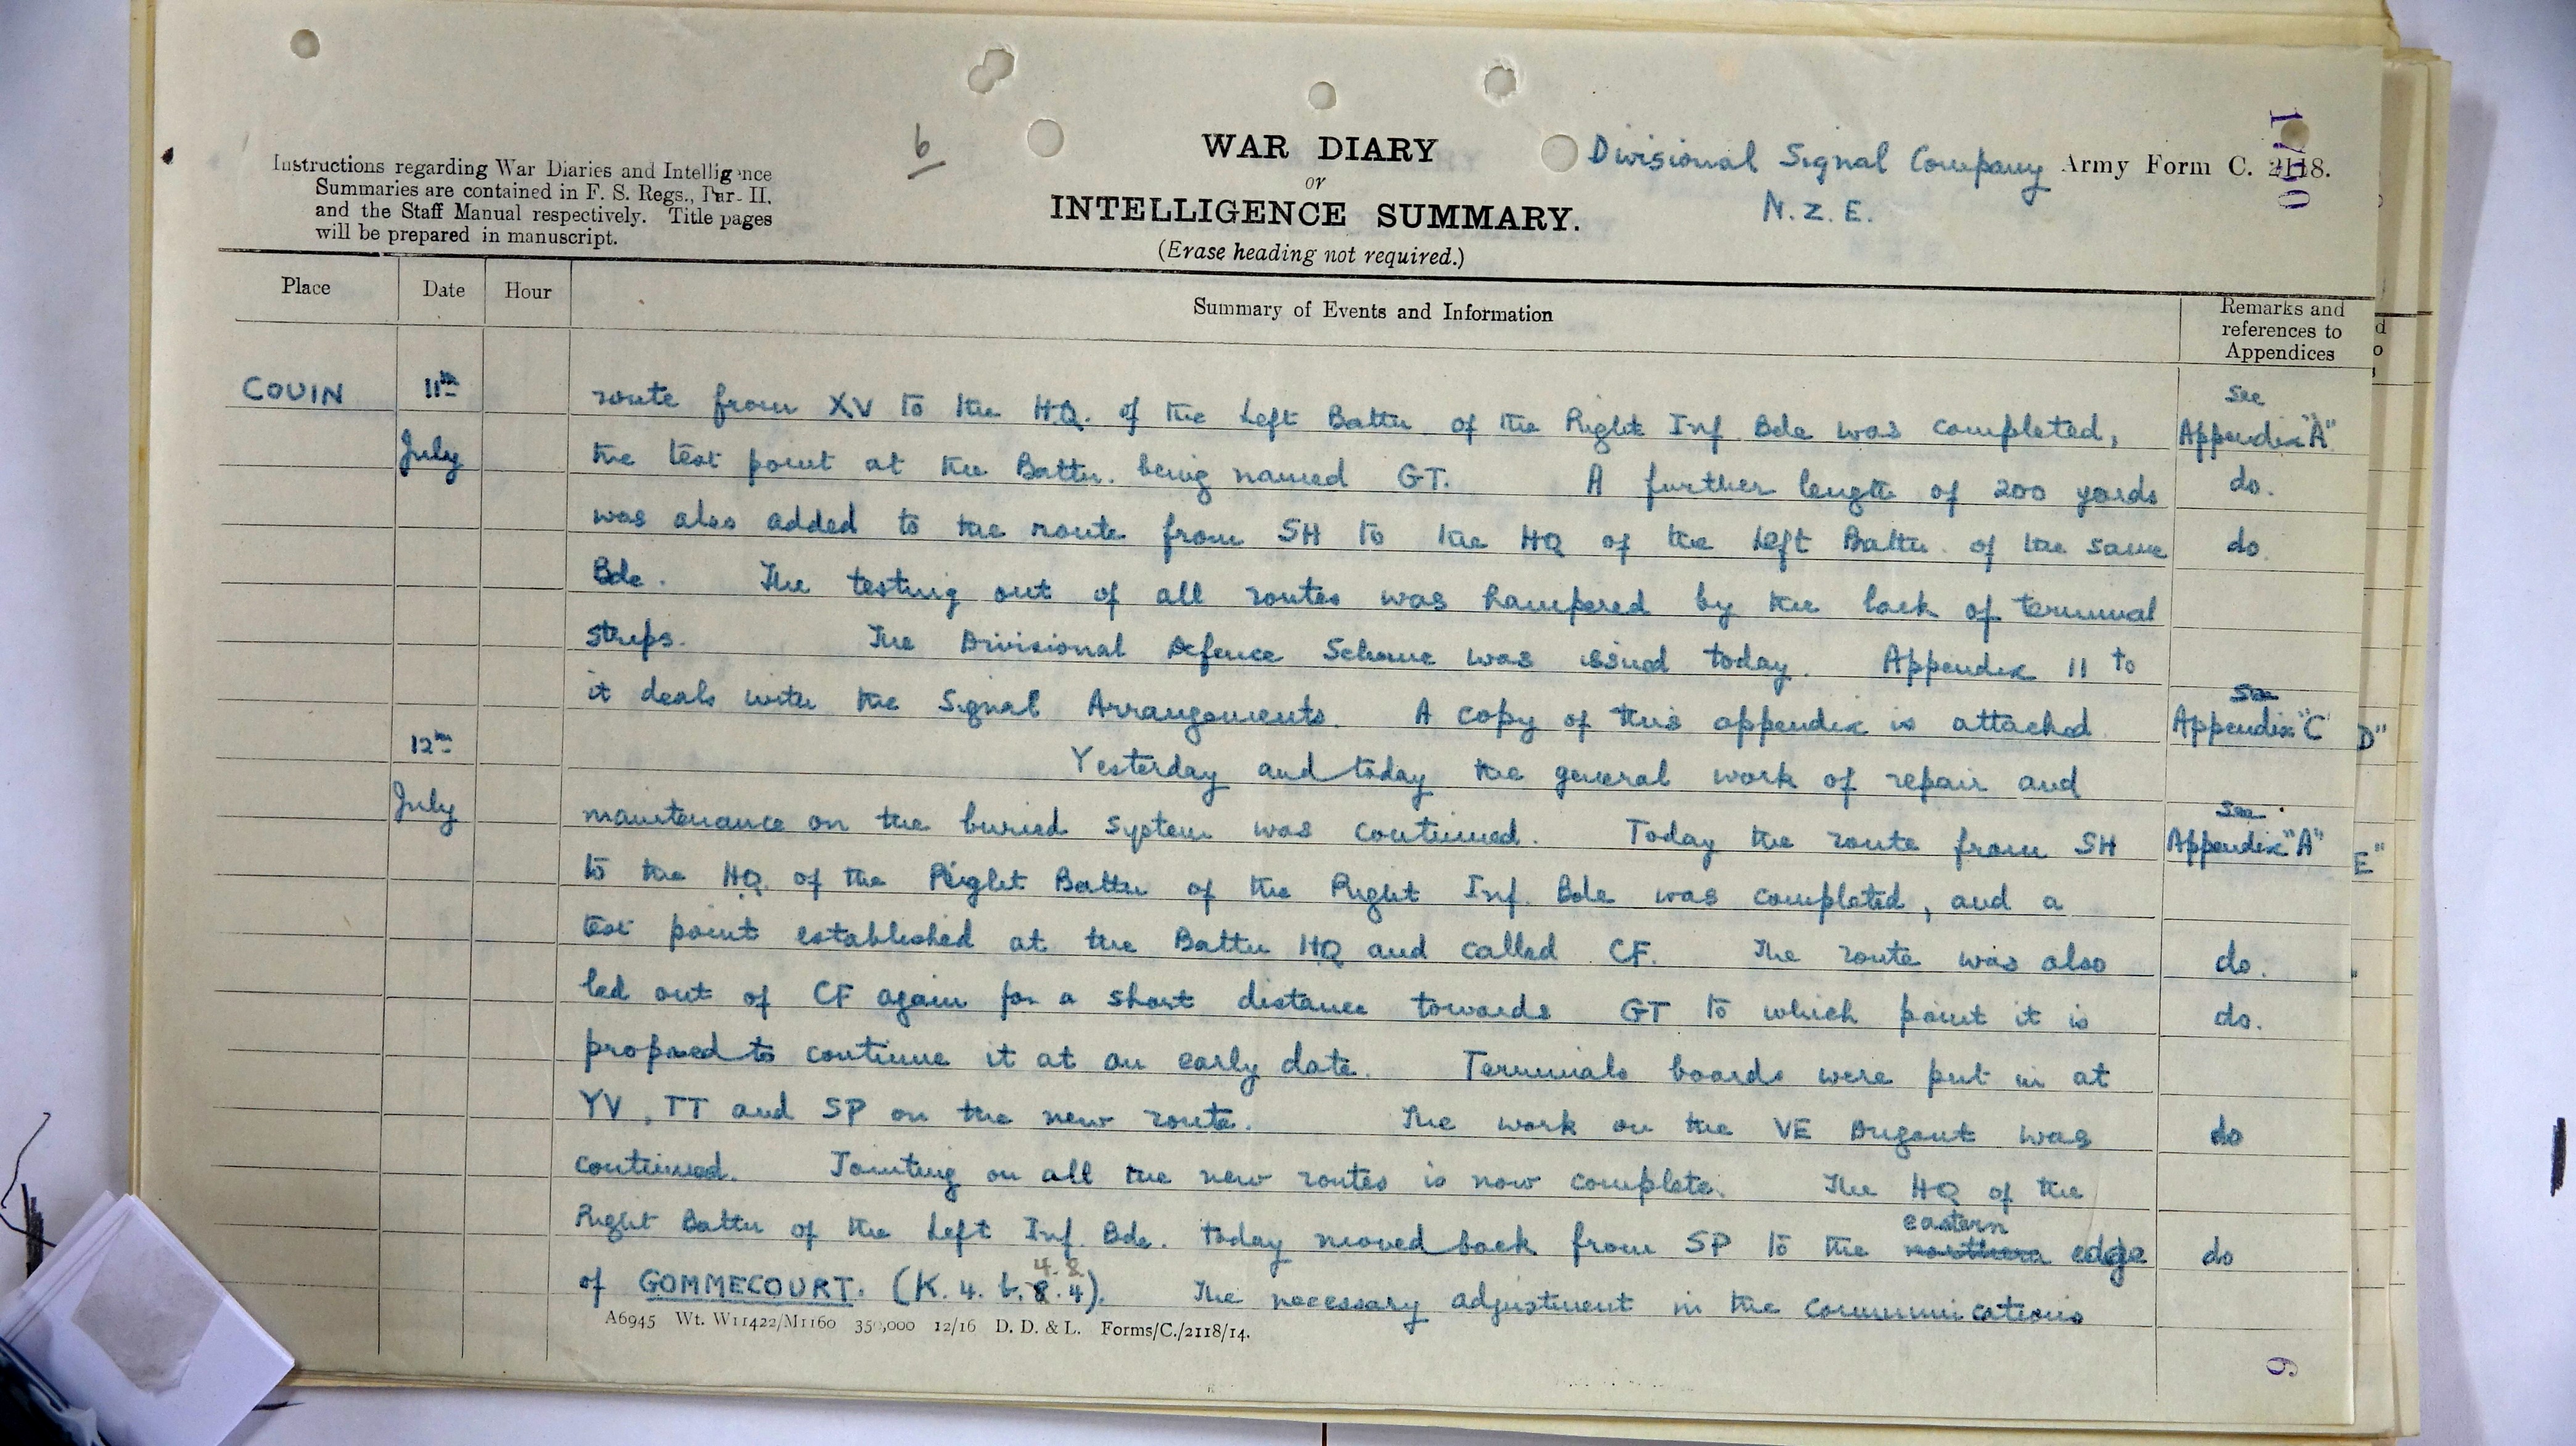 6
WAR DIARY
or
INTELLIGENCE SUMMARY.
(Erase heading not required.)
Instructions regarding War Diaries and Intelligence
Summaries are contained in F. S. Regs., Par. II,
and the Staff Manual respectively. Title pages
will be prepared in manuscript.
Divisional Signal Company
N. Z. E.
Army Form C. 2118.
Place Date Hour Summary of Events and Information Remarks and
references to
Appendices
COUIN 11th route from XV to the HQ. of the Left Battn of the Right Inf Bde was completed, see Appendix "A"
July the test point at the Battn. being named GT. A further length of 200 yards do.
was also added to the route from SH to the HQ of the Left Battn. of the same do.
Bde. The testing out of all routes was hampered by the lack of terminal
strips. The Divisional Defence Scheme was issued today. Appendix 11 to
it deals with the Signal Arrangements. A copy of this appendix is attached see Appendix "C
12th Yesterday and today the general work of repair and
July maintenance on the buried system was continued. Today the route from SH see Appendix "A"
to the HQ. of the Right Battn of the Right Inf. Bde was completed, and a
test point established at the Battn HQ and called CF. The route was also do.
led out of CF again for a short distance towards GT to which point it is do.
proposed to continue it at an early date. Terminals boards were put in at
YV, TT and SP on the new route. The work on the VE Dugout was do
continued. Jointing on all the new routes is now complete. The HQ of the
Right Battn of the Left Inf. Bde. today moved back from SP to the northern eastern edge do
of GOMMECOURT. (K. 4. b. 8. 4). 4. 8 The necessary adjustment in the communications
A6945 Wt. W11422/M1160 350,000 12/16 D. D. & L. Forms/C./2118/14.
D"
E"
9